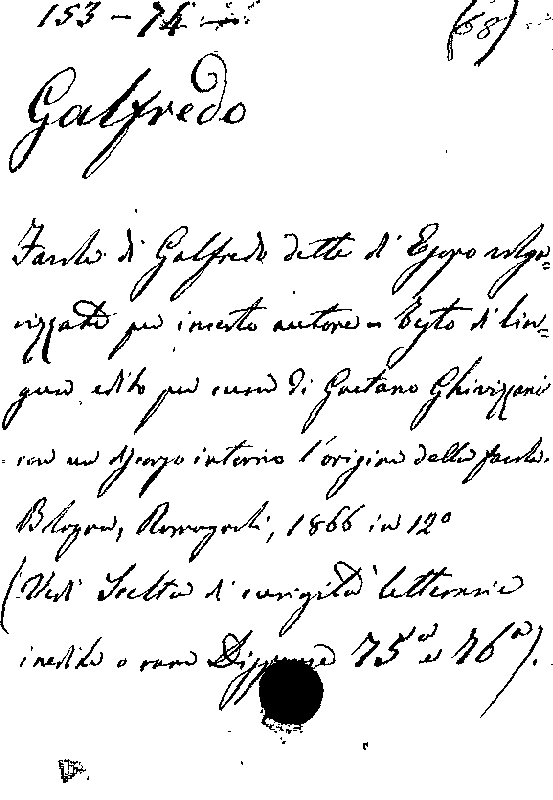 153-74 (68)
Galfredo
Favole di Galfredo dette di Esopo volga=
rizzate per incerto autore - Testo di lin=
gua edito per cura di Gaetano Ghivizzani
con un discorso intorno l'origine della favola.
Bologna, Romagnoli, 1866 in 12º
(Vedi Scelta di curiosità letterarie
inedite o rare Dispense 75ª e 76ª).